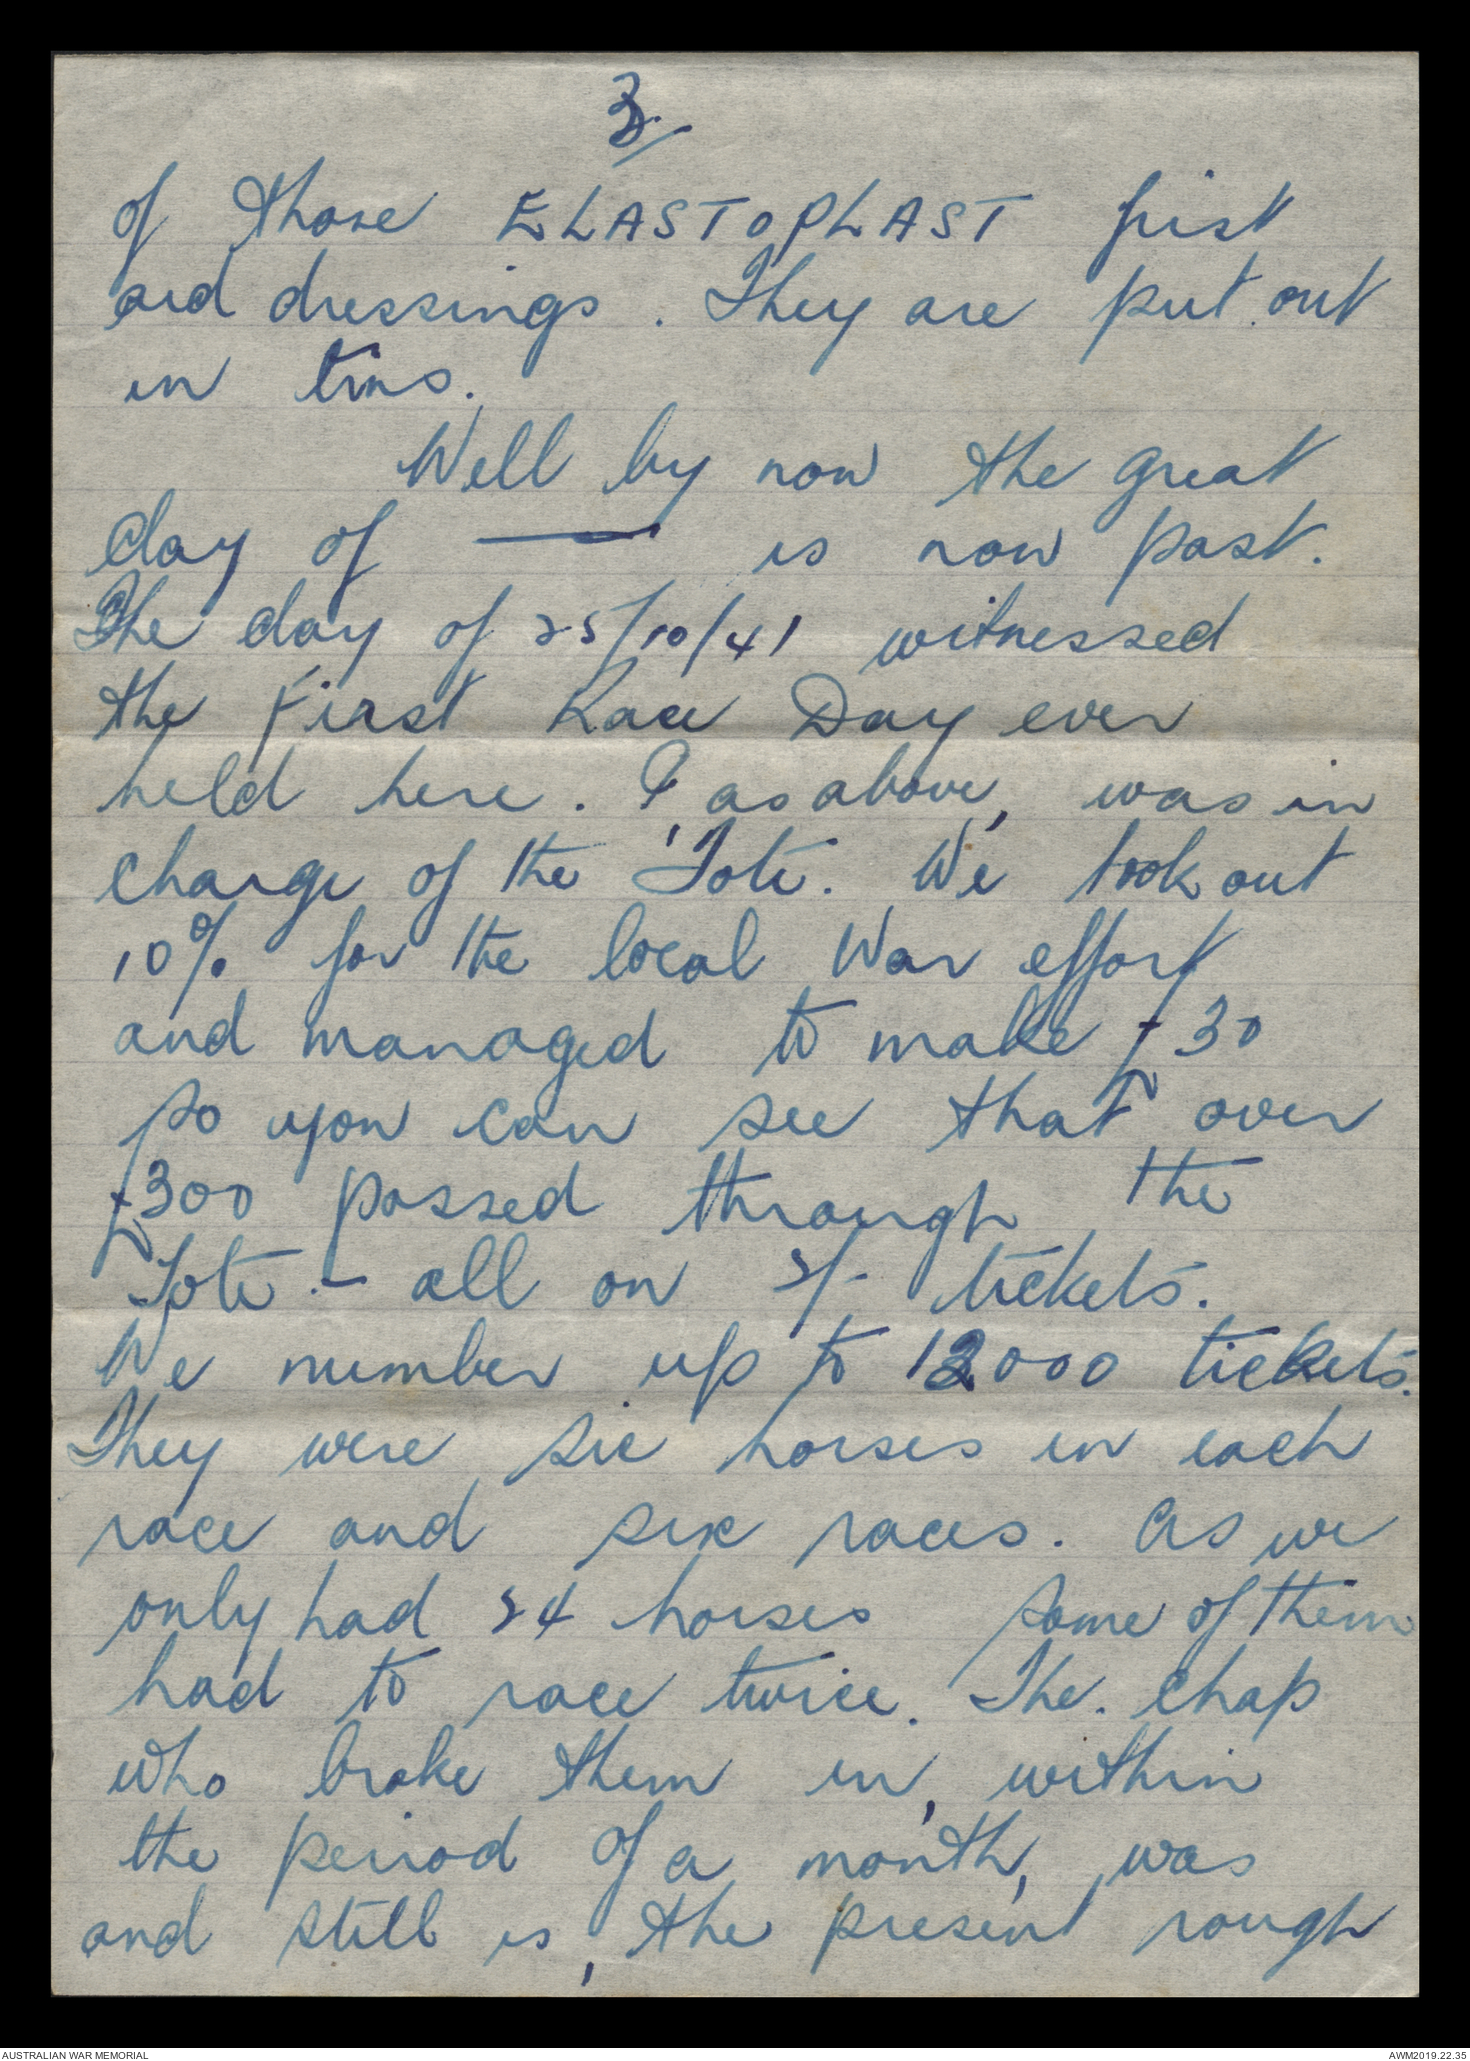 3.
of those ELASTOPLAST first
aid dressings. They are put out
in tins.
Well by now the great
day of —— is now past.
The day of 25/10/41 witnessed
the First Race Day ever
held here. I as above, was in
charge of the 'Tote. We took out
10% for the local War effort
and managed to make £30
so you can see that over
£300 passed through the
Tote. - all on 2/- tickets.
We number up to 12000 tickets.
They were six horses in each
race and six races. As we
only had 24 horses some of them
had to race twice. The. chap
who broke them in, within
the period of a month, was
and still is, the present rough
AUSTRALIAN WAR MEMORIAL
AWM2019.22.35